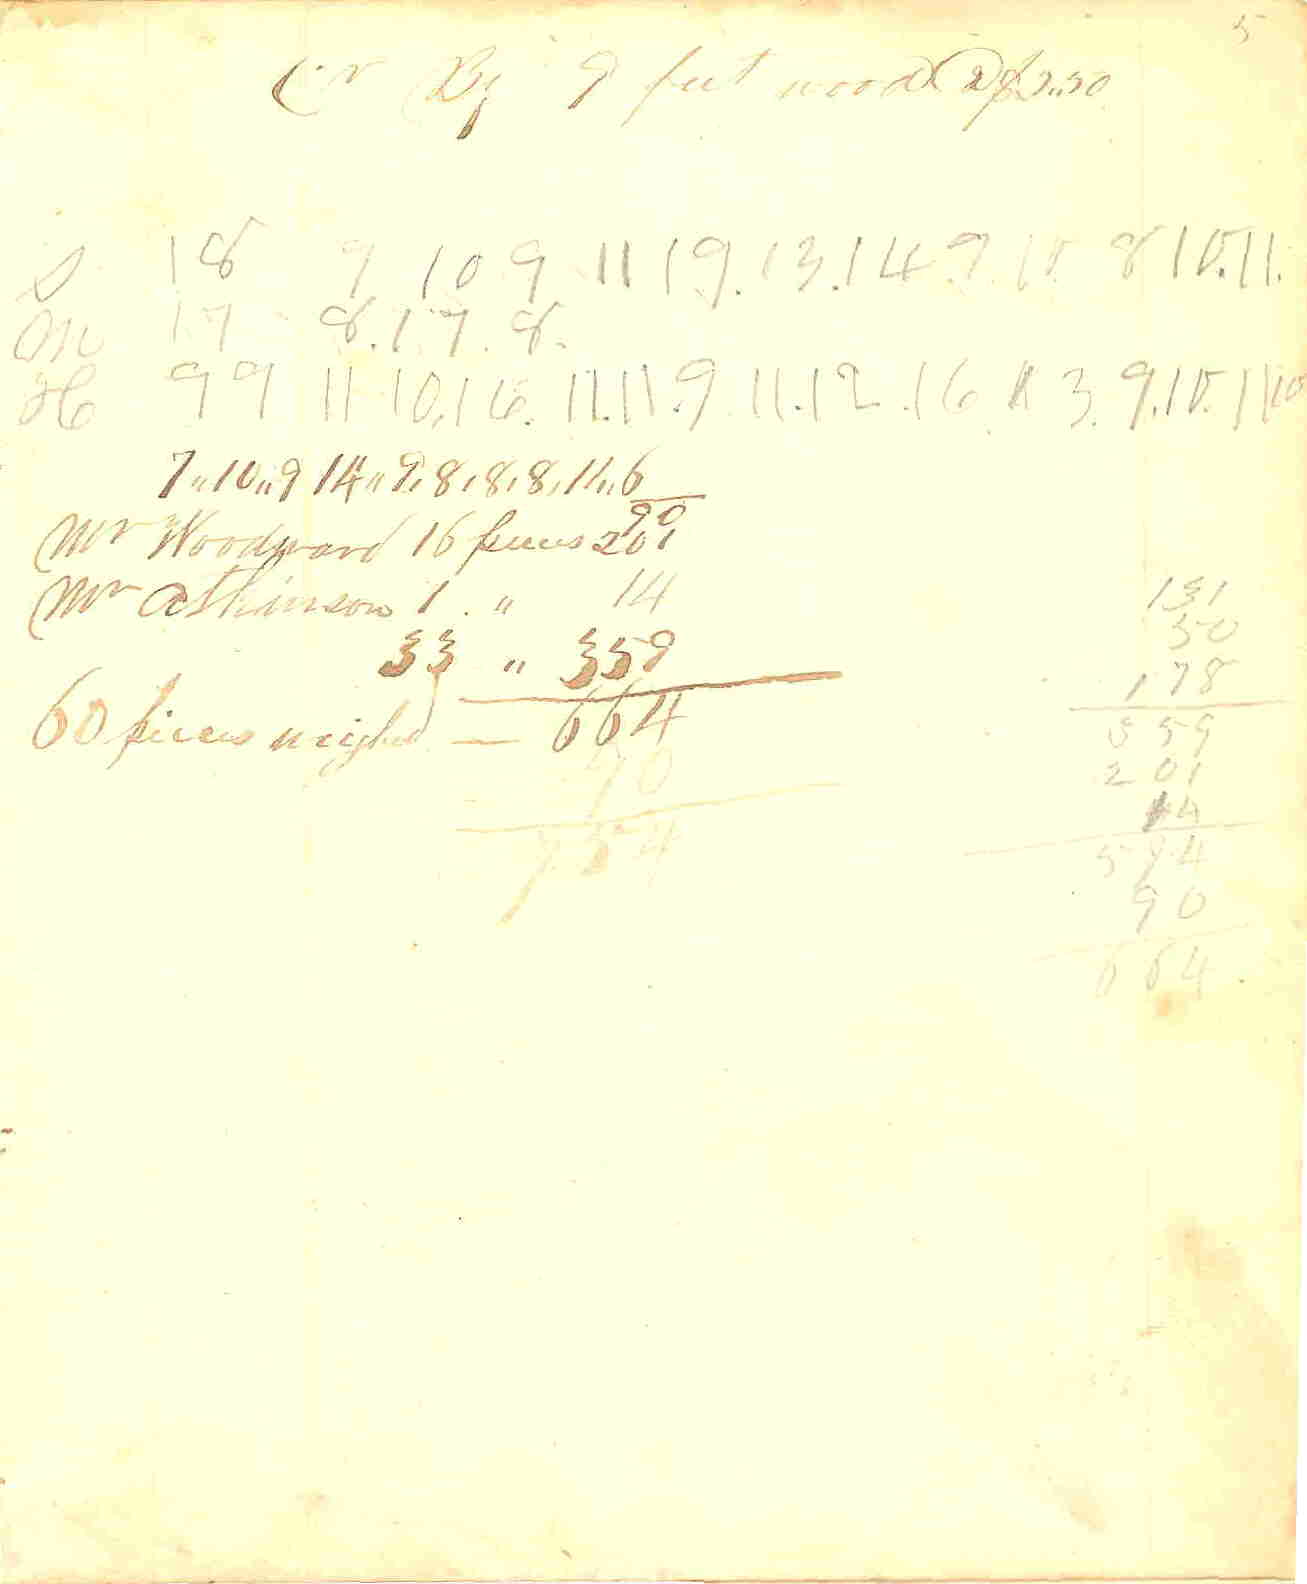 5
Cr By 9 feet wood
S 18 9 10 9 11 19. 13. 14. 9. 10. 8 10. 11.
M 17 8. 17. 8.
H 9 9 11 10. 16. 11. 11. 9 11. 12 .16 13. 9. 10. 11 10
7 „ 10 „ 9 14 „ 9, 8, 8, 8, 11 „ 6
90
Mr Woodward 16 pieces 201
Mr Atkinson 1 . „ 14
33 „ 359
60 pieces weighed — 664
90
754
131
50
178
359
201
14
574
90
664